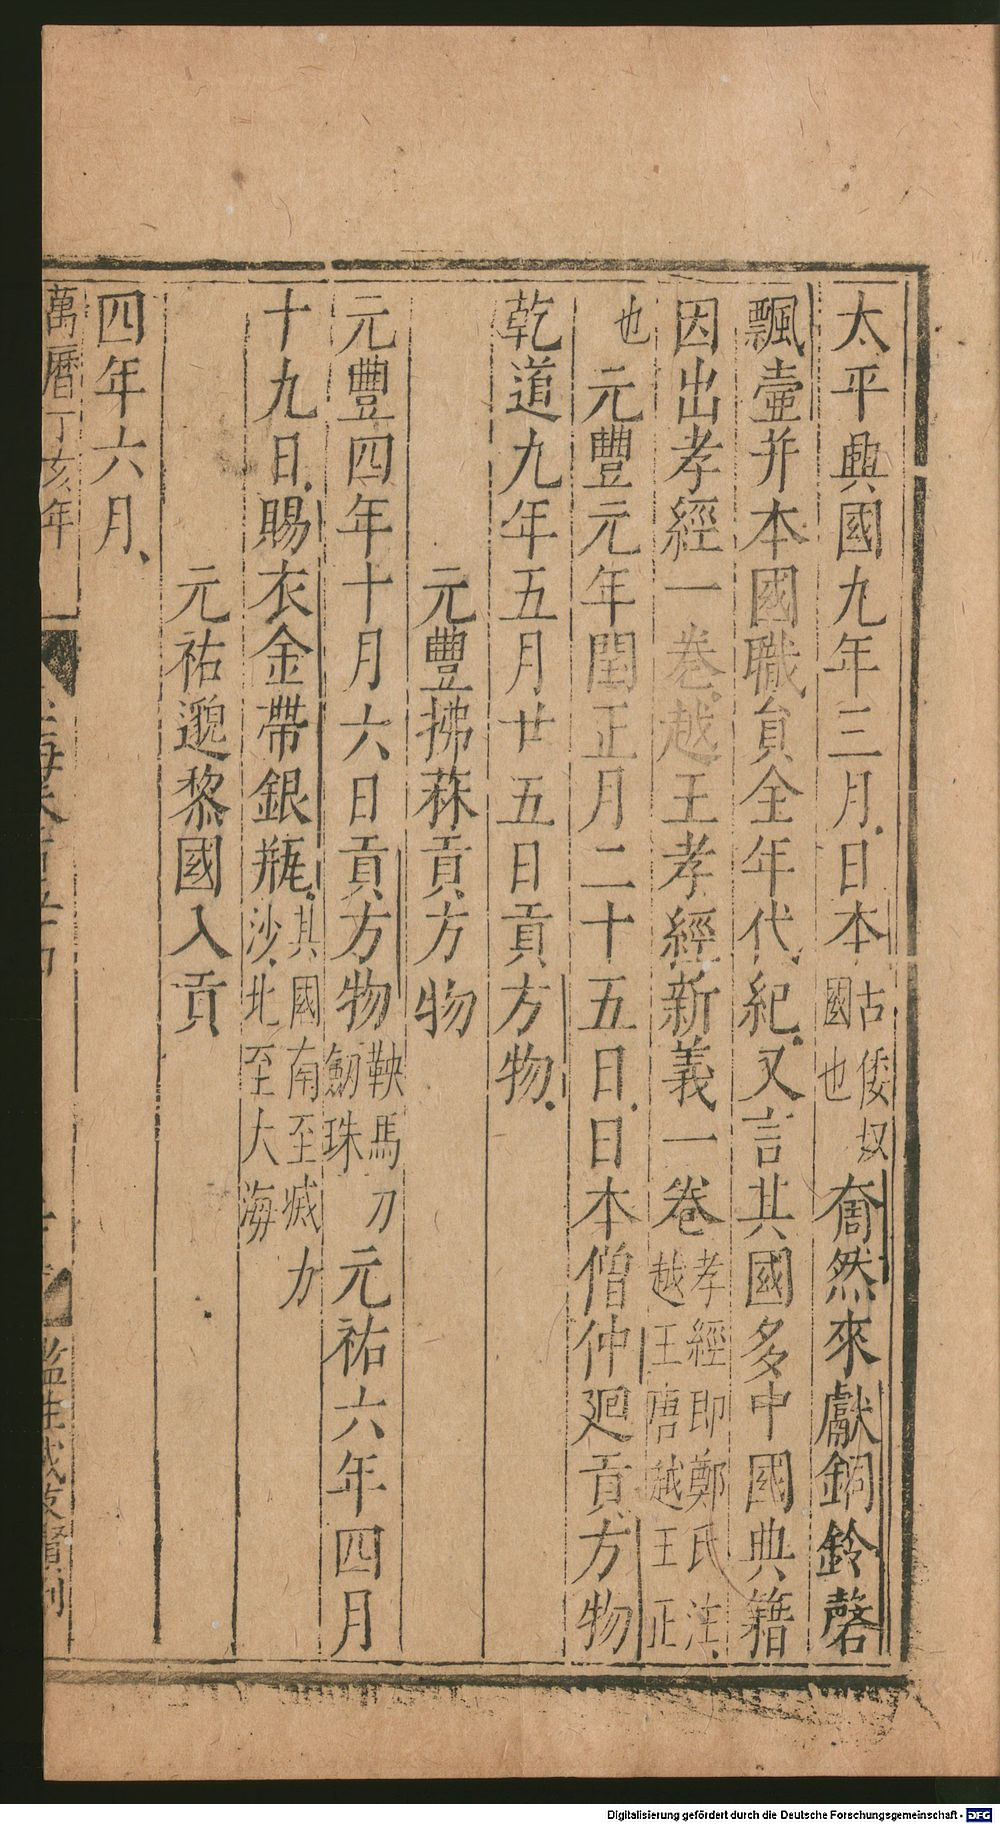 太平興國九年三月日本古倭奴國也奝然來獻銅鈴磬
飄壷并本國職貟全年代紀又言其國多中國典籍
因出孝經一卷越王孝經新義一卷孝經即鄭氏注越王唐越王正
也元豐元年閏正月二十五日日本僧仲廻貢方物
乾道九年五月廿五日貢方物
元豐拂菻貢方物
元豐四年十月六日貢方物鞍馬刀劒珠元祐六年四月
十九日賜衣金帶銀瓶其國南至滅力沙北至大海
元祐邈黎國入貢
四年六月
萬曆丁亥年
監生戚友賢刊
Digitalisierung gefördert durch die Deutsche Forschungsgemeinschaft - DFG